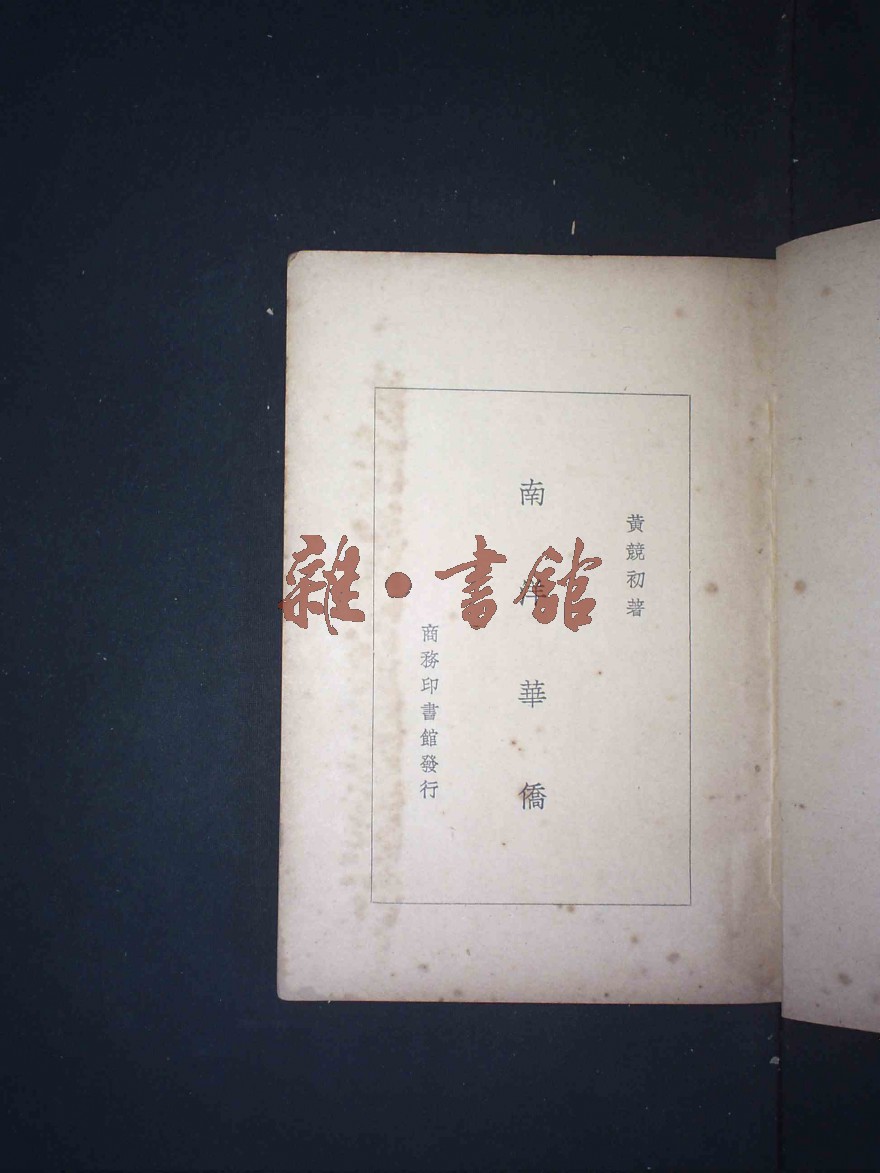 黃競初著
南洋華僑
商務印書館發行
雜·書館